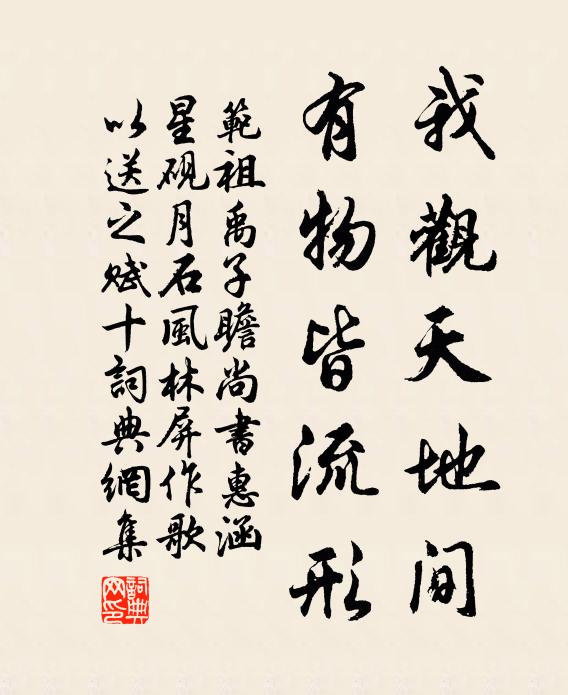 我觀天地间
有物皆流形
範祖禹子瞻尚書惠涵
星砚月石風林屏作歌
以送之赋十詞典網集
詞典網印